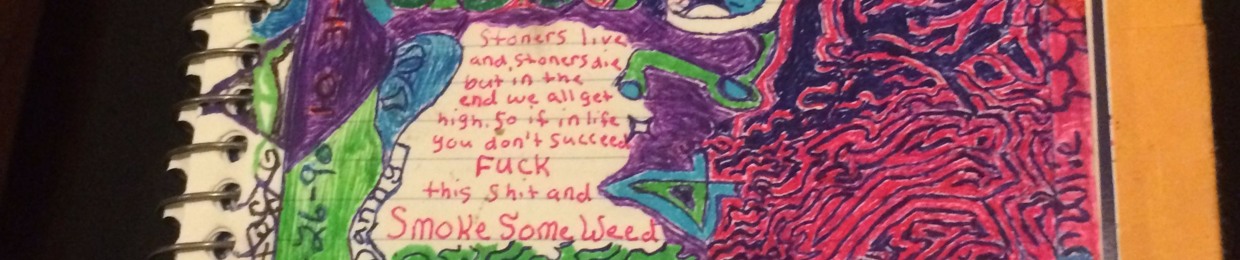 Stoners live
and, stoners die
but in the
end we all get
high. So if in life
you don't succeed
FUCK
this shit and
Smoke Some Weed
10 31
26-90